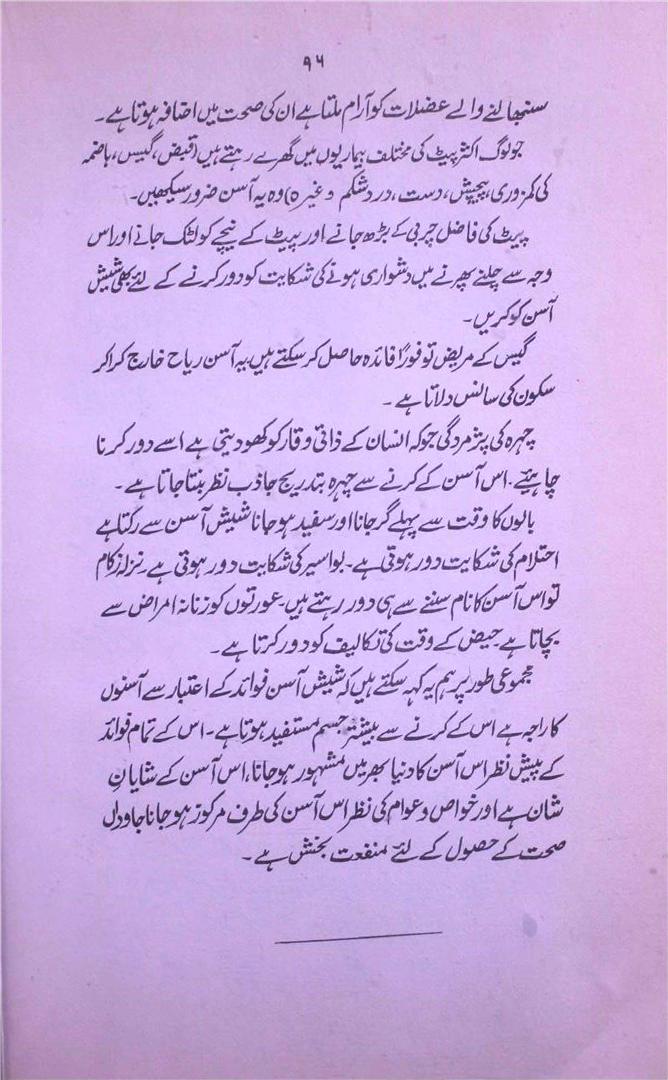 ۹۶
سنبھالنے والے عضلات کو آرام ملتا ہے ان کی صحت میں اضافہ ہوتا ہے۔
جو لوگ اکثر پیٹ کی مختلف بیماریوں میں گھرے رہتے ہیں (قبض، گیس، ہاضمہ
کی کمزوری، پیچش، دست، درد شکم وغیرہ) وہ یہ آسن ضرور سیکھیں۔
پیٹ کی فاضل چربی کے بڑھ جانے اور پیٹ کے نیچے کو لٹک جانے اور اس
وجہ سے چلنے پھرنے میں دشواری ہونے کی شکایت کو دور کرنے کے لئے بھی شیش
آسن کو کریں۔
گیس کے مریض تو فوراً فائدہ حاصل کر سکتے ہیں یہ آسن ریاح خارج کرا کر
سکون کی سانس دلاتا ہے۔
چہرہ کی پژمردگی جو کہ انسان کے ذاتی وقار کو کھو دیتی ہے اسے دور کرنا
چاہیئے۔ اس آسن کے کرنے سے چہرہ بتدریج جاذب نظر بنتا جاتا ہے۔
بالوں کا وقت سے پہلے گر جانا اور سفید ہو جانا شیش آسن سے رکتا ہے
احتلام کی شکایت دور ہوتی ہے۔ بواسیر کی شکایت دور ہوتی ہے۔ نزلہ زکام
تو اس آسن کا نام سننے سے ہی دور رہتے ہیں۔ عورتوں کو زنانہ امراض سے
بچاتا ہے۔ حیض کے وقت کی تکالیف کو دور کرتا ہے۔
مجموعی طور پر ہم یہ کہہ سکتے ہیں کہ شیش آسن فوائد کے اعتبار سے آسنوں
کا راجہ ہے اس کے کرنے سے بیشتر جسم مستفید ہوتا ہے۔ اس کے تمام فوائد
کے پیش نظر اس آسن کا دنیا بھر میں مشہور ہو جانا، اس آسن کے شایانِ
شان ہے اور خواص و عوام کی نظر اس آسن کی طرف مرکوز ہو جانا جاوداں
صحت کے حصول کے لئے منفعت بخش ہے۔